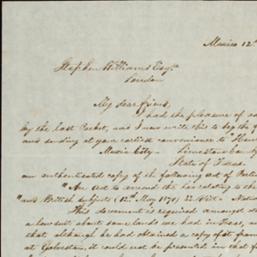 Mexico 12th
Stephen Williams Esqr.
London
My dear friend,
had the pleasure of
by the last Packet, and I now write this to beg the
and sending at your earliest convenience to "
Mexia City - Limestone County
State of Texas.
an authenticated copy of the following act of
"An act to amend the law relating to the
"and British subjects (12th. May 1870) 33 Vict -
This document is required amongst
a lawsuit about some lands we had in Texas, an
that although he had obtained a copy of it from
at Galveston, it could not be presented in that